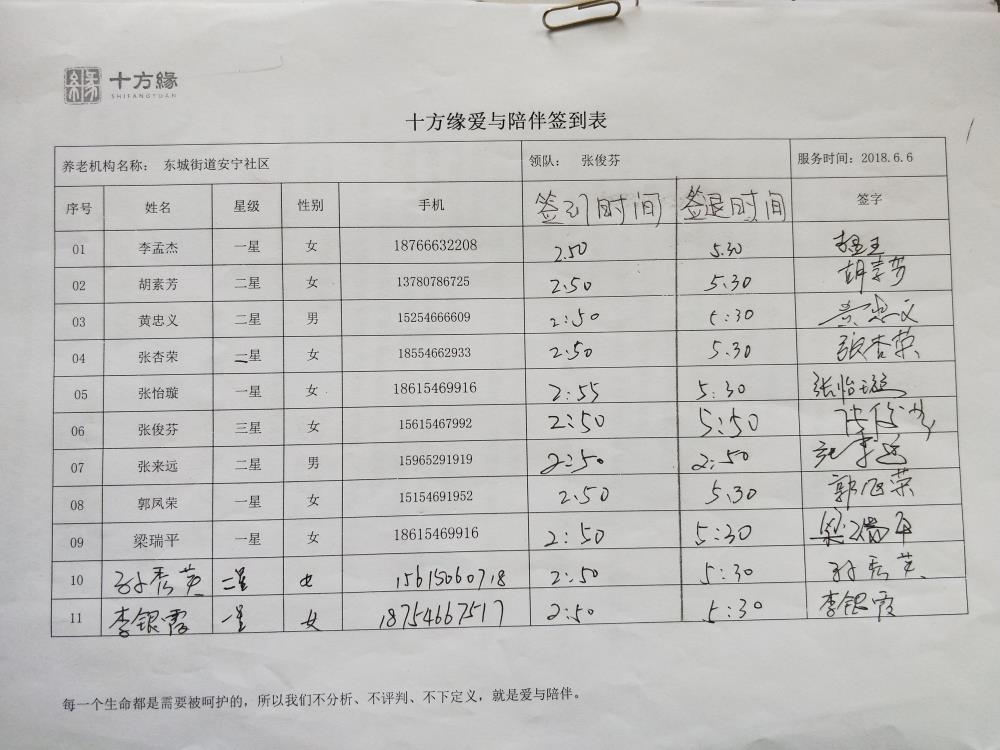 十方緣
SHIFANGYUAN
十方缘爱与陪伴签到表
养老机构名称: 东城街道安宁社区 领队: 张俊芬 服务时间: 2018.6.6
序号 姓名 星级 性别 手机 签到时间 签退时间 签字
01 李孟杰 一星 女 18766632208 2.50 5.30
02 胡素芳 二星 女 13780786725 2:50 5.30 胡素芳
03 黄忠义 二星 男 15254666609 2:50 5:30 黄忠义
04 张杏荣 二星 女 18554662933 2:50 5.30 张杏荣
05 张怡璇 一星 女 18615469916 2:55 5:30 张怡璇
06 张俊芬 三星 女 15615467992 2:50 5:50 张俊芬
07 张来远 二星 男 15965291919 2:50 2:50 张来远
08 郭凤荣 一星 女 15154691952 2.50 5.30 郭凤荣
09 梁瑞平 一星 女 18615469916 2:50 5:30 梁瑞平
10 孙秀英 二星 女 15615060718 2:50 5:30 孙秀英
11 李银霞 一星 女 18754667517 2:50 5:30 李银霞
每一个生命都是需要被呵护的，所以我们不分析、不评判、不下定义，就是爱与陪伴。